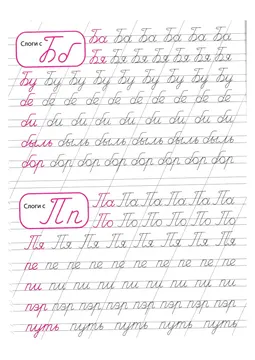 Слоги с Бб
Ба Ба Ба Ба Ба Ба
Бя Бя Бя Бя Бя Бя
Бу Бу Бу Бу Бу Бу Бу Бу Бу
бе бе бе бе бе бе бе бе бе
би би би би би би би би би
быль быль быль быль быль быль быль
бор бор бор бор бор бор бор бор
Слоги с Пп
Па Па Па Па Па Па
По По По По По По
Пя Пя Пя Пя Пя Пя Пя Пя
пе пе пе пе пе пе пе пе пе
пи пи пи пи пи пи пи пи пи
пэр пэр пэр пэр пэр пэр пэр пэр
путь путь путь путь путь